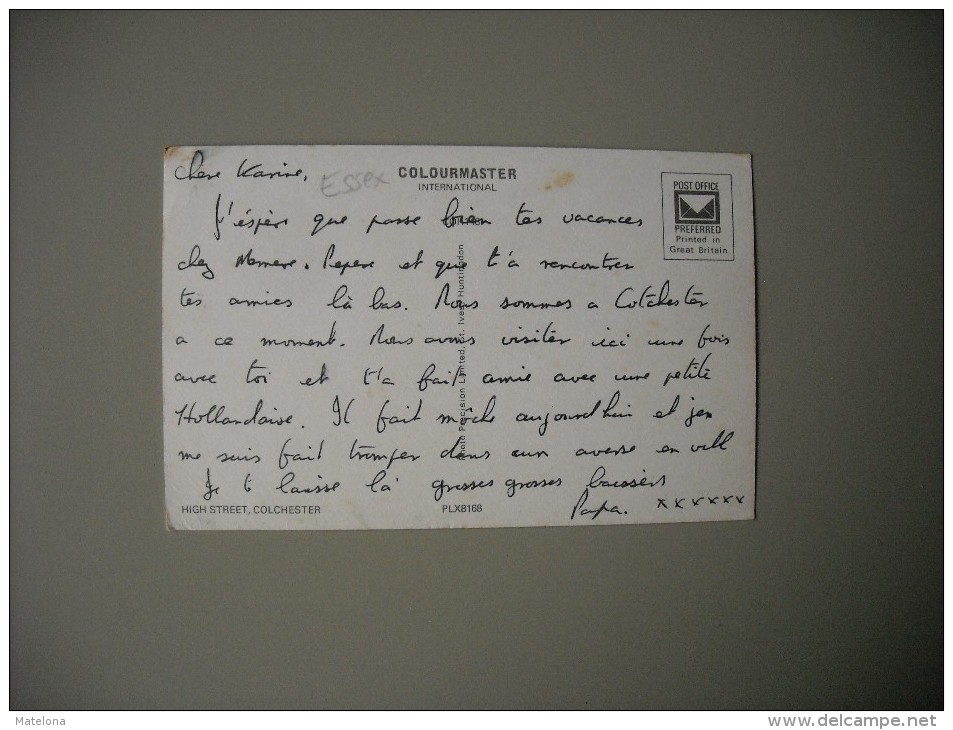 Chere Karine,
Essex
COLOURMASTER
INTERNATIONAL
POST OFFICE
PREFERRED
Printed in
Great Britain
J'éspère que passe bien tes vacances
chez Memere. Pepere et que t'á rencontrer
tes amies là bas. Nous sommes a Colchester
a ce moment. Nous avons visiter ici une fois
avec toi et t'a fait amie avec une petite
Hollandaise. Il fait môche aujourd'hui et j'en
me suis fait tromper dans un averse en vill
Je t laisse là grosses grosses baissers
Papa. xxxxxx
Photo Precision Limited, St. Ives, Huntingdon
HIGH STREET, COLCHESTER
PLX8168
Matelona
www.delcampe.net